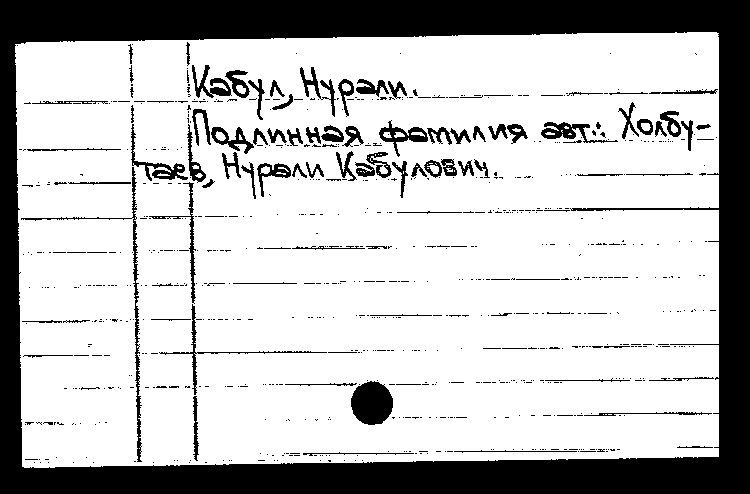 Кабул, Нурали.
Подлинная фамилия авт.: Холбу-
таев, Нурали Кабулович.